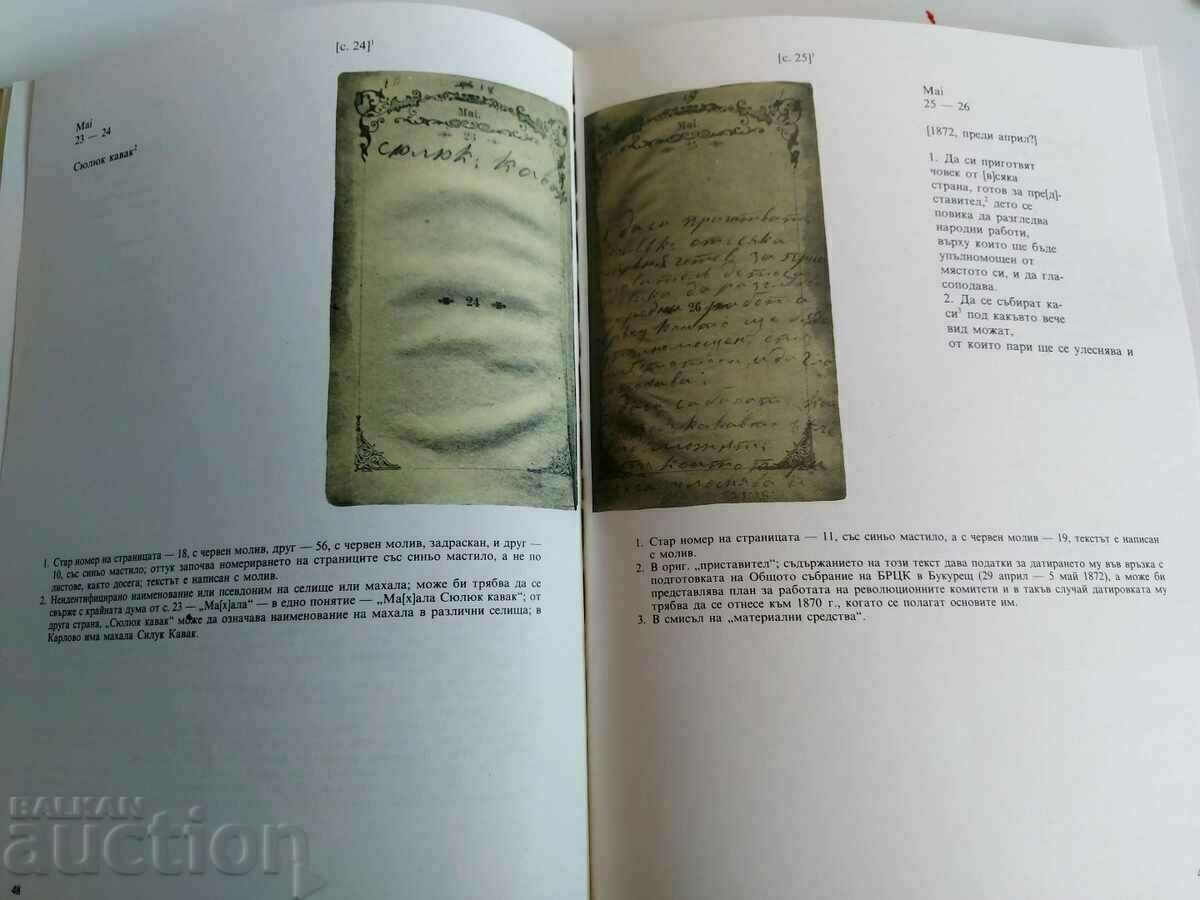 [с. 24]¹
Mai
23 — 24
Сюлюк кавак²
Mai.
23
сюлюк. кава
24
1. Стар номер на страницата — 18, с червен молив, друг — 56, с червен молив, задраскан, и друг —
10, със синьо мастило; оттук започва номерирането на страниците със синьо мастило, а не по
листове, както досега; текстът е написан с молив.
2. Неидентифицирано наименование или псевдоним на селище или махала; може би трябва да се
свърже с крайната дума от с. 23 — „Ма[х]ала“ — в едно понятие — „Ма[х]ала Сюлюк кавак“; от
друга страна, „Сюлюк кавак“ може да означава наименование на махала в различни селища; в
Карлово има махала Силук Кавак.
48
[с. 25]¹
Mai
25 — 26
[1872, преди април?]
1. Да си приготвят
човек от [в]сяка
страна, готов за пре[д]-
ставител,² дето се
повика да разгледва
народни работи,
върху които ще бъде
упълномощен от
мястото си, и да гла-
соподава.
2. Да се събират ка-
си³ под какъвто вече
вид можат,
от които пари ще се улеснява и
19
Mai.
25
26
1. Стар номер на страницата — 11, със синьо мастило, а с червен молив — 19, текстът е написан
с молив.
2. В ориг. „приставител“; съдържанието на този текст дава податки за датирането му във връзка с
подготовката на Общото събрание на БРЦК в Букурещ (29 април — 5 май 1872), а може би
представлява план за работата на революционните комитети и в такъв случай датировката му
трябва да се отнесе към 1870 г., когато се полагат основите им.
3. В смисъл на „материални средства“.
BALKAN
auction